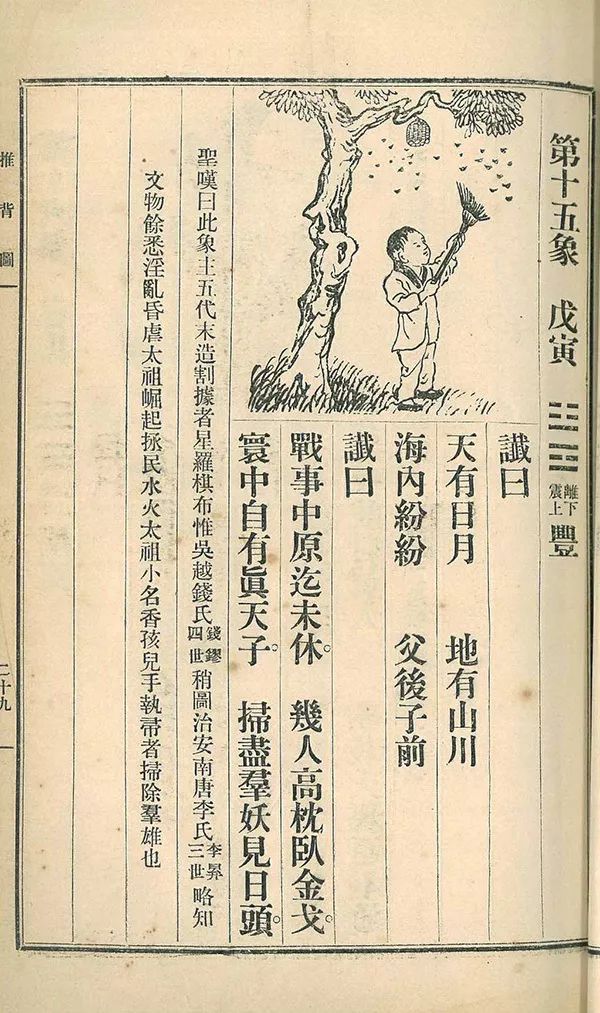 第十五象 戊寅 ䷶ 離下震上 豐
讖曰
天有日月 地有山川
海內紛紛 父後子前
讖曰
戰事中原迄未休。 幾人高枕臥金戈。
寰中自有眞天子。 掃盡羣妖見日頭。
聖嘆曰此象主五代末造割據者星羅棋布惟吳越錢氏錢鏐四世稍圖治安南唐李氏李昪三世略知
文物餘悉淫亂昏虐太祖崛起拯民水火太祖小名香孩兒手執帚者掃除羣雄也
推背圖
二十九